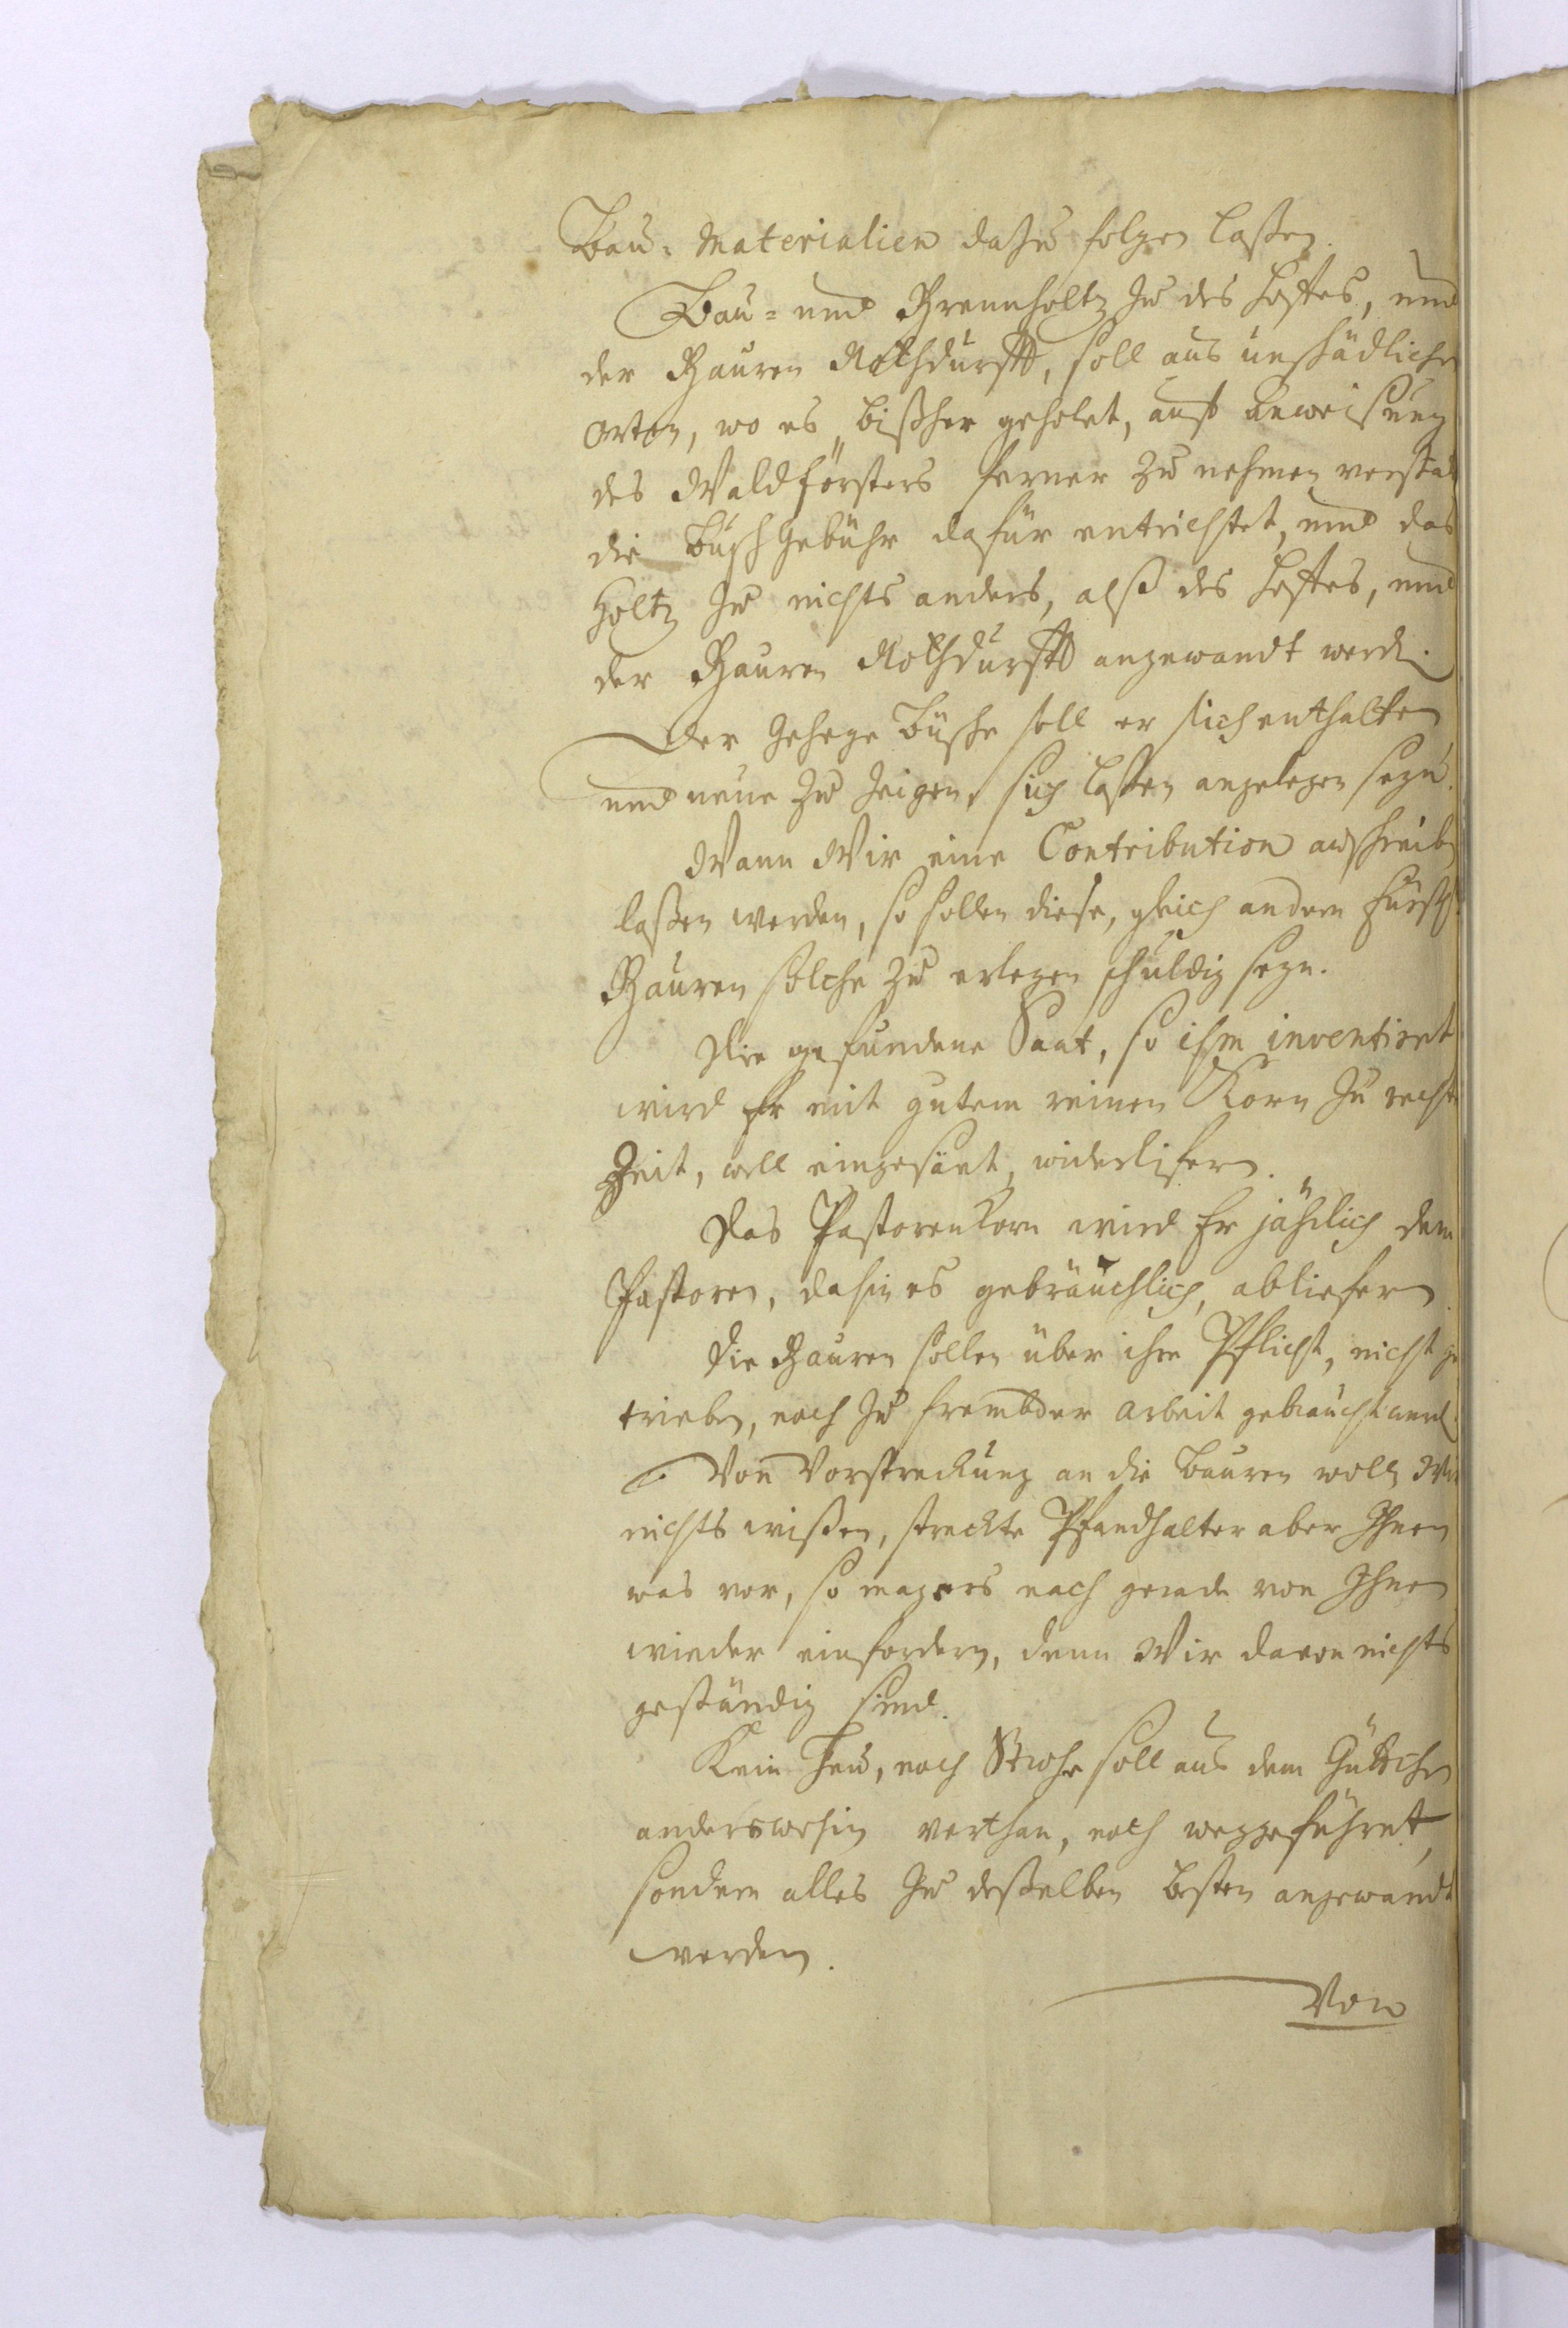 Bau-Materialien dazu folgen laßen.
Bau- und Brennholtz zu des Hofes, und
der Bauren Nothdurfft, soll aus unschädlichen
Orten, wo es bißher geholet, auf Anweisung
des Waldförsters ferner zu nehmen
die Busch Gebühr dafür entrichtet, und das
Holtz zu nichts anders, alß des Hofes, und
der Bauren Nothdurfft angewandt werden.
Der Gehege Büsche soll er sich enthalten
und neue zu heigen, sich laßen angelegen seyn.
Wann Wir eine Contribution ausschreiben
laßen werden, so sollen diese, gleich andern Fürstl.
Bauren solche zu erlegen schuldig seyn.
Die gefundene Saat, so ihm inventiret
wird Er mit gutem reinen Korn zu rechter
Zeit, woll eingesäet, wiederliefern.
Das Pastorenkorn wird Er jährlich dem
Pastoren, dahin es gebräuchlich, abliefern.
Die Bauren sollen über ihre Pflicht, nicht ge
trieben, noch zu frembder Arbeit gebraucht werden.
Von Vorstreckung an die Bauren wollen Wir
nichts wißen, streckte Pfandhalter aber Ihnen
was vor, so mag ers nach gerade von Ihnen
wieder einfordern, denn Wir davon nichts
geständig sind.
Kein Heu, noch Strohe soll aus dem Güttchen
anderswohin verthan, noch weggeführet,
sondern alles zu deßelben besten angewandt
werden.
Von